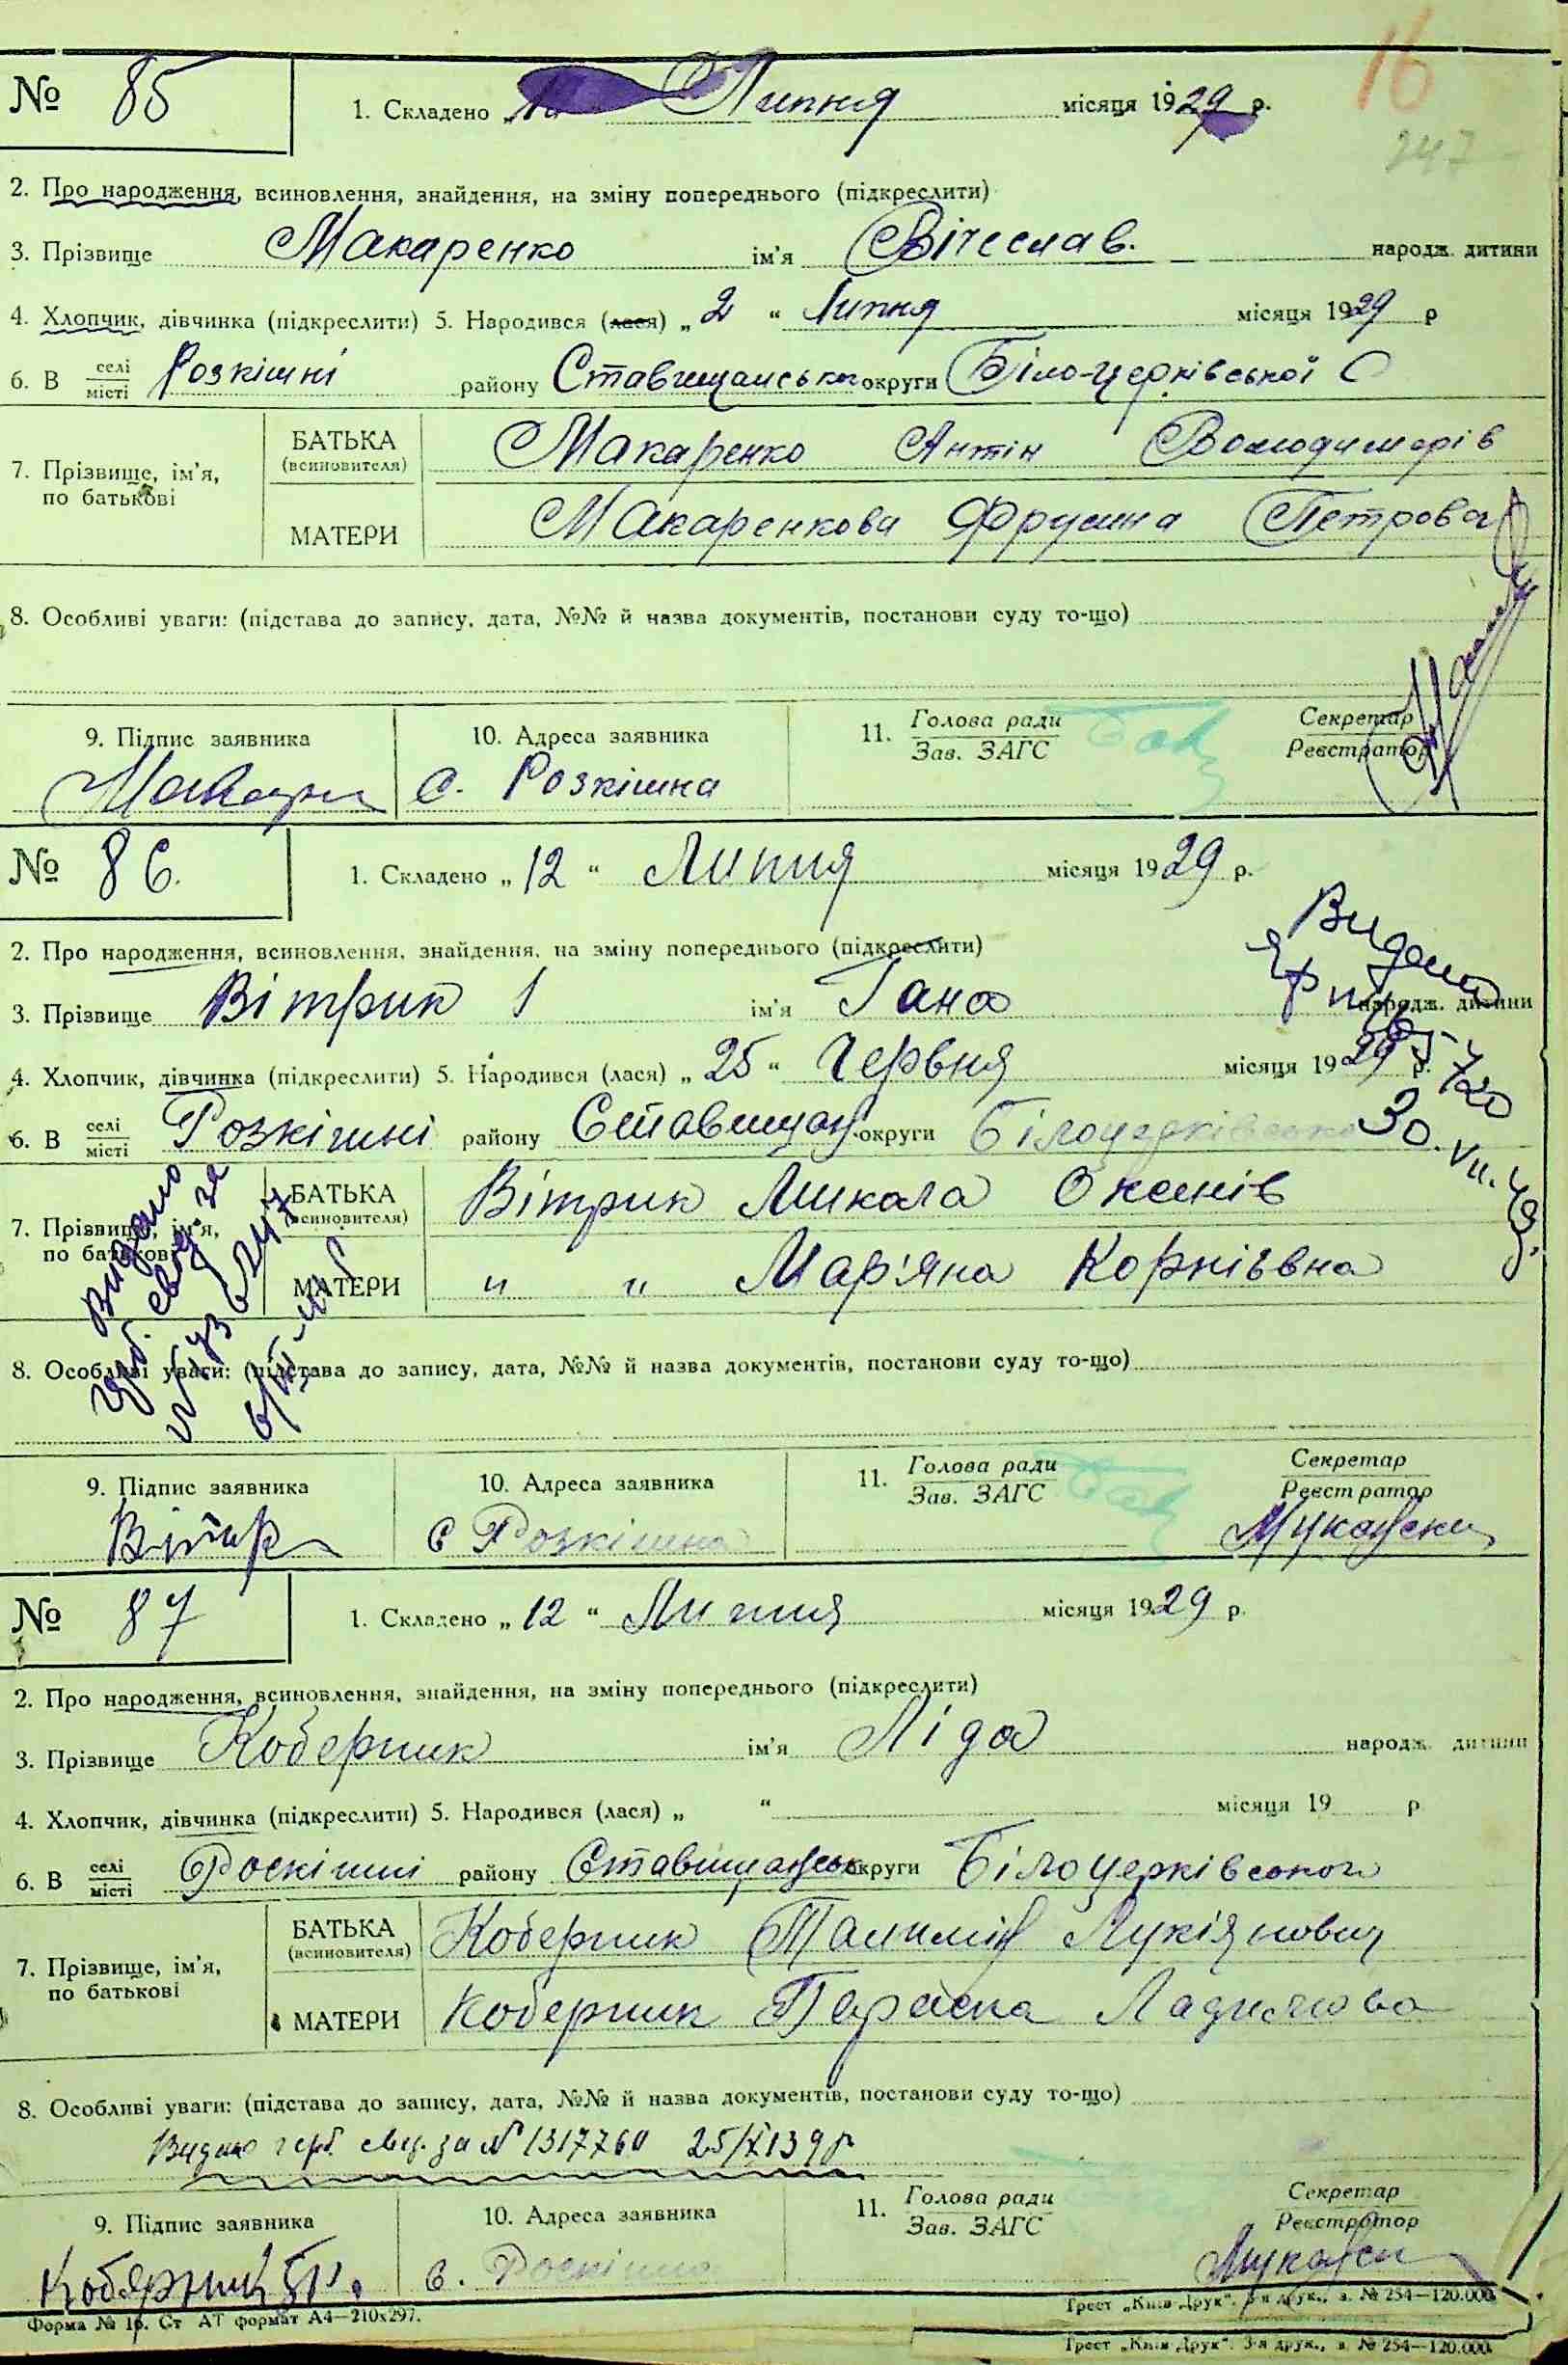 16
247
№ 85
1. Складено „ Липня місяця 1929 р.
2. Про народження, всиновлення, знайдення, на зміну попереднього (підкреслити)
3. Прізвище Макаренко ім'я Вічеслав. народж. дитини
4. Хлопчик, дівчинка (підкреслити) 5. Народився (лася) „ 2 “ Липня місяця 1929 р
6. В селі/місті Розкішні району Ставищанського округи Біло-церківської
7. Прізвище, ім'я, по батькові
БАТЬКА (всиновителя) Макаренко Антін Володимирів
МАТЕРИ Макаренкова Фрусина Петрова
8. Особливі уваги: (підстава до запису, дата, №№ й назва документів, постанови суду то-що)
9. Підпис заявника 10. Адреса заявника 11. Голова ради/Зав. ЗАГС Секретар/Реєстратор
с. Розкішна
№ 86.
1. Складено „ 12 “ Липня місяця 1929 р.
2. Про народження, всиновлення, знайдення, на зміну попереднього (підкреслити)
3. Прізвище Вітрик ім'я Гана народж. дитини
4. Хлопчик, дівчинка (підкреслити) 5. Народився (лася) „ 25 “ Червня місяця 1929 р.
6. В селі/місті Розкішні району Ставищан округи Білоцерківської
Видано
30.VII.
7. Прізвище, ім'я, по батькові
БАТЬКА (всиновителя) Вітрик Микола Оксенів
МАТЕРИ " " Мар'яна Корніївна
Видано
8. Особливі уваги: (підстава до запису, дата, №№ й назва документів, постанови суду то-що)
9. Підпис заявника 10. Адреса заявника 11. Голова ради/Зав. ЗАГС Секретар/Реєстратор
с Розкішна
№ 87
1. Складено „ 12 “ Липня місяця 1929 р.
2. Про народження, всиновлення, знайдення, на зміну попереднього (підкреслити)
3. Прізвище Коберник ім'я Ліда народж. дитини
4. Хлопчик, дівчинка (підкреслити) 5. Народився (лася) „ “ місяця 19 р
6. В селі/місті Роскішні району Ставищанськ округи Білоцерківського
7. Прізвище, ім'я, по батькові
БАТЬКА (всиновителя) Коберник Лукіянович
МАТЕРИ Коберник Параска
8. Особливі уваги: (підстава до запису, дата, №№ й назва документів, постанови суду то-що)
Видано герб. свід. за № 1317760 25/X 139 р
9. Підпис заявника 10. Адреса заявника 11. Голова ради/Зав. ЗАГС Секретар/Реєстратор
с. Роскішна
Форма № 16. Ст АТ формат А4—210х297.
Трест „Київ-Друк“. 3-я друк., з. № 254—120.000.
Трест „Київ-Друк“. 3-я друк., з. № 254—120.000.